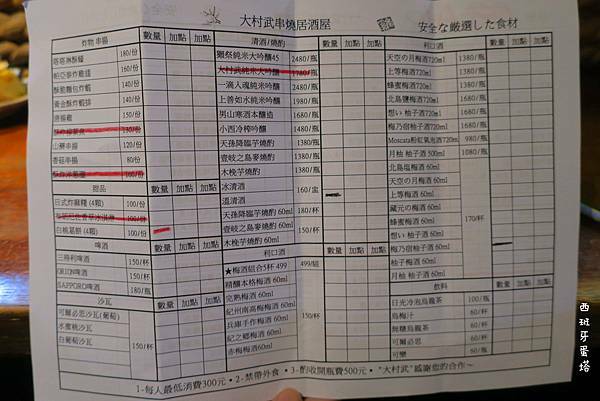 大村武串燒居酒屋
安全な厳選した食材
炸物 串揚 數量 加點 加點
塔塔淋酥蝦 180/份
帕亞麥炸雞腿 160/份
酥脆麵包炸蝦 140/份
黃金酥炸蝦排 140/份
唐揚雞 150/份
山藥串揚 120/份
香菇串揚 80/份
甜品 數量 加點 加點
日式炸麻糬 (4顆) 100/份
白桃葛餅 (4顆) 100/份
啤酒 數量 加點 加點
三得利啤酒 150/杯
ORION啤酒 150/瓶
SAPPORO啤酒 180/瓶
沙瓦 數量 加點 加點
可爾必思沙瓦(葡萄)
水蜜桃沙瓦
白葡萄沙瓦
150/杯
清酒/燒酌 數量 加點 加點
獺祭純米大吟釀45 2480/瓶
大村武純米大吟釀 1780/瓶
一滴人魂純米吟釀 2480/瓶
上善如水純米吟釀 1980/瓶
男山寒酒本釀造 1680/瓶
小西冷榨吟釀 1480/瓶
天孫降臨芋燒酌 1580/瓶
壹岐之島麥燒酌 1380/瓶
木挽芋燒酌 1380/瓶
冰清酒
溫清酒
160/盅
天孫降臨芋燒酌 60ml 180/杯
壹岐之島麥燒酌 60ml
木挽芋燒酌 60ml
150/杯
利口酒 數量 加點 加點
★梅酒組合5杯 499 499/組
精釀本格梅酒 60ml
完熟梅酒 60ml
紀州南高梅梅酒 60ml
兵庫手作梅酒 60ml
紀之鄉梅酒 60ml
赤梅梅酒 60ml
150/杯
利口酒 數量 加點 加點
天空の月梅酒720ml 1380/瓶
上等梅酒720ml 1380/瓶
蜂蜜梅酒720ml 1380/瓶
北島鹽梅酒720ml 1680/瓶
想い 柚子酒720ml 1680/瓶
梅乃宿柚子酒720ml 1680/瓶
Moscata粉紅氣泡酒720ml 980/瓶
月柚 柚子酒 500ml 1080/瓶
北島塩梅酒 60ml
天空の月梅酒 60ml
上等梅酒 60ml
藏元の梅酒 60ml
蜂蜜梅酒 60ml
想い 柚子酒 60ml
梅乃宿柚子酒 60ml
柚子梅酒 60ml
月柚 柚子酒 60ml
170/杯
飲料 數量 加點 加點
日光冷泡烏龍茶 100/瓶
烏梅汁 60/杯
無糖烏龍茶 60/杯
可爾必思 60/杯
可樂 60/瓶
1-每人最低消費300元・2-禁帶外食・3-酌收開瓶費500元・"大村武"感謝您的合作～
西班牙蛋塔